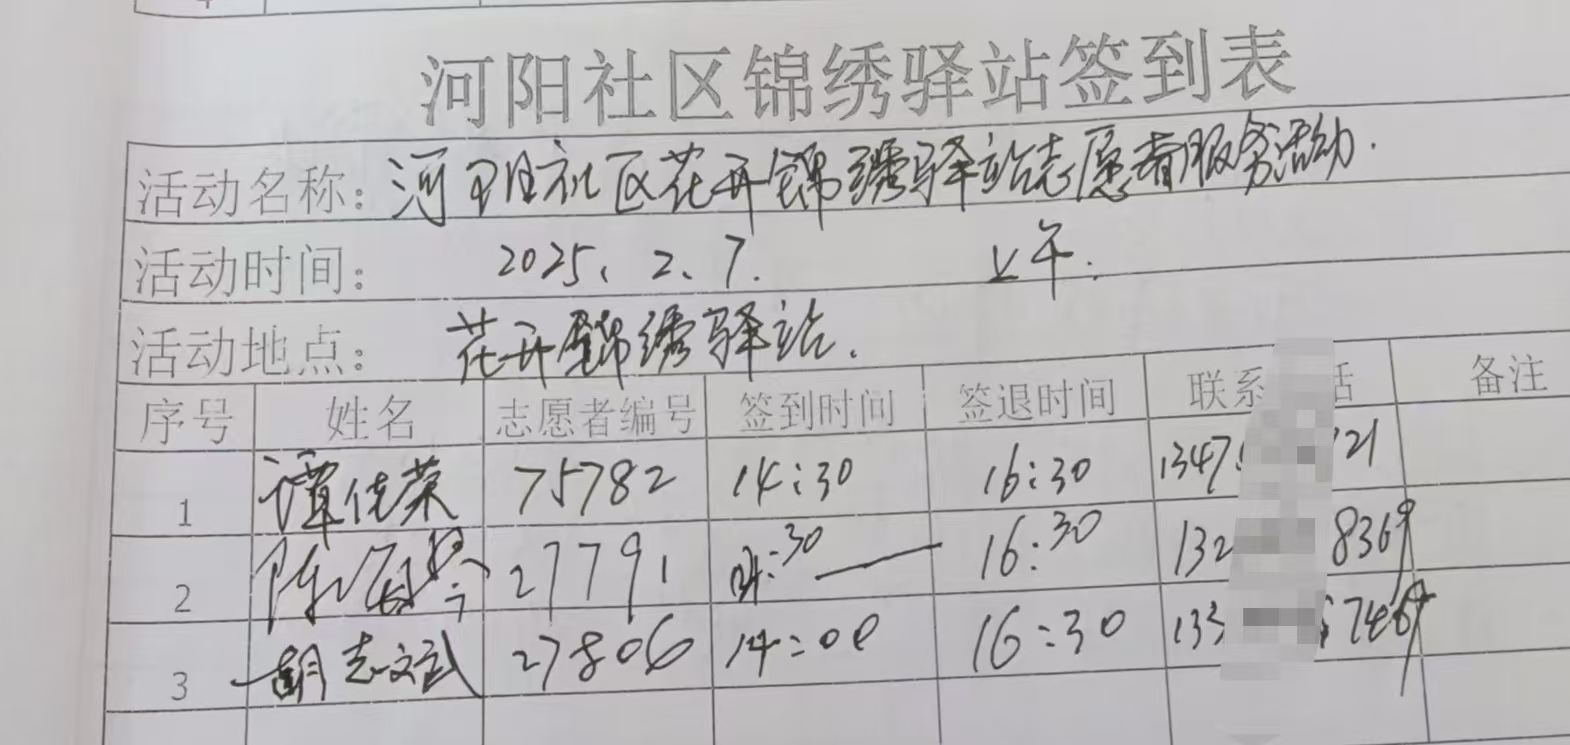 河阳社区锦绣驿站签到表
活动名称: 河阳社区花开锦绣驿站志愿者服务活动.
活动时间: 2025、2、7. 上午.
活动地点: 花开锦绣驿站.
序号 姓名 志愿者编号 签到时间 签退时间 联系 话 备注
1 谭佳荣 75782 14:30 16:30 1347 21
2 陈 27791 :30 — 16:30 132 8369
3 胡志斌 27806 14:00 16:30 133